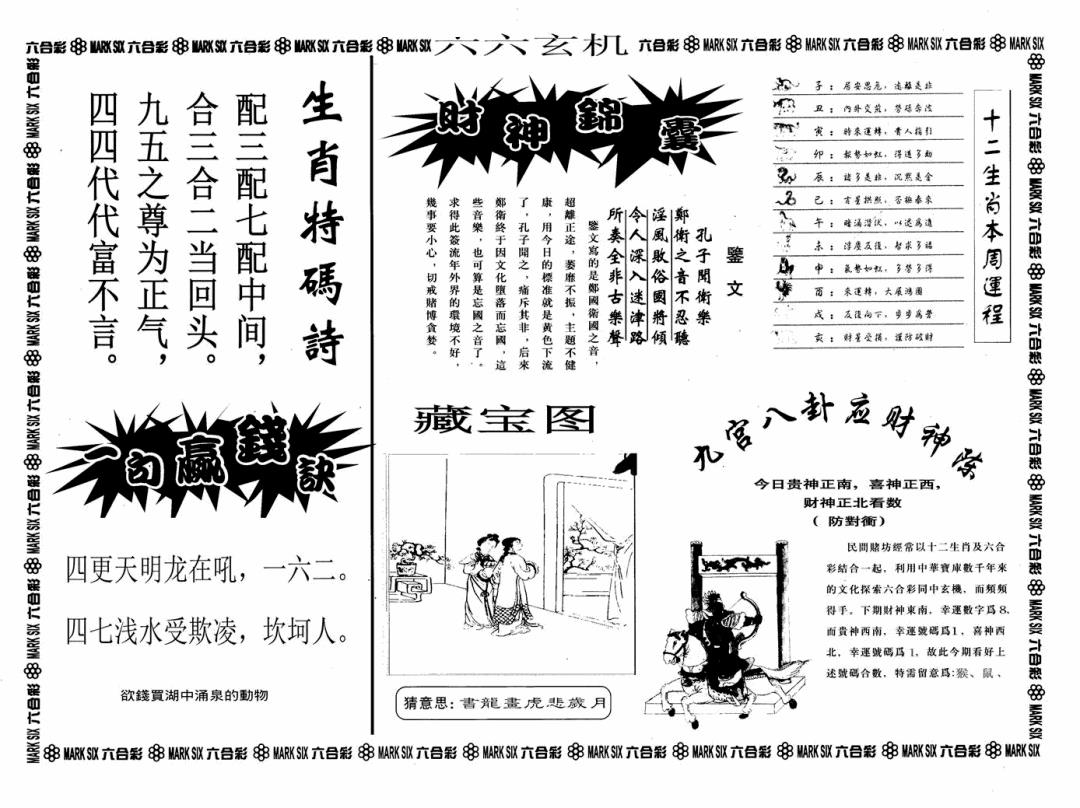 六合彩 MARK SIX 六合彩 MARK SIX 六合彩 MARK SIX 六合彩 MARK SIX 六六玄机 六合彩 MARK SIX 六合彩 MARK SIX 六合彩 MARK SIX 六合彩 MARK SIX
生肖特碼詩
配三配七配中间，
合三合二当回头。
九五之尊为正气，
四四代代富不言。
一句贏錢訣
四更天明龙在吼，一六二。
四七浅水受欺凌，坎坷人。
欲錢買湖中涌泉的動物
財神錦囊
鑒文
孔子聞衛樂
鄭衛之音不忍聽
淫風敗俗國將傾
令人深入迷津路
所奏全非古樂聲
鑒文寫的是鄭國衛國之音，
超離正途，萎靡不振，主題不健
康，用今日的標准就是黄色下流
了，孔子聞之，痛斥其非，后來
鄭衛終于因文化墮落而忘國，這
些音樂，也可算是忘國之音了。
求得此簽流年外界的環境不好，
幾事要小心，切戒賭博貪婪。
十二生肖本周運程
子：居安思危，遠離是非
丑：內外交煎，
寅：時來運轉，貴人指引
卯：
辰：諸多是非，沉默是金
巳：
午：
未：
申：氣勢如虹，多勞多得
酉：來運轉，大展鴻圖
戌：
亥：財星受損，謹防破財
藏宝图
猜意思：書龍畫虎悲歲月
九宮八卦应财神
今日贵神正南，喜神正西，
财神正北看数
（防對衝）
民間賭坊經常以十二生肖及六合
彩結合一起，利用中華寶庫數千年來
的文化探索六合彩同中玄機，而頻頻
得手。下期財神東南，幸運數字爲8，
而貴神西南，幸運號碼爲1，喜神西
北，幸運號碼爲1，故此今期看好上
述號碼合數，特需留意爲：猴、鼠、
MARK SIX 六合彩 MARK SIX 六合彩 MARK SIX 六合彩 MARK SIX 六合彩 MARK SIX 六合彩 MARK SIX 六合彩 MARK SIX 六合彩 MARK SIX 六合彩 MARK SIX 六合彩 MARK SIX